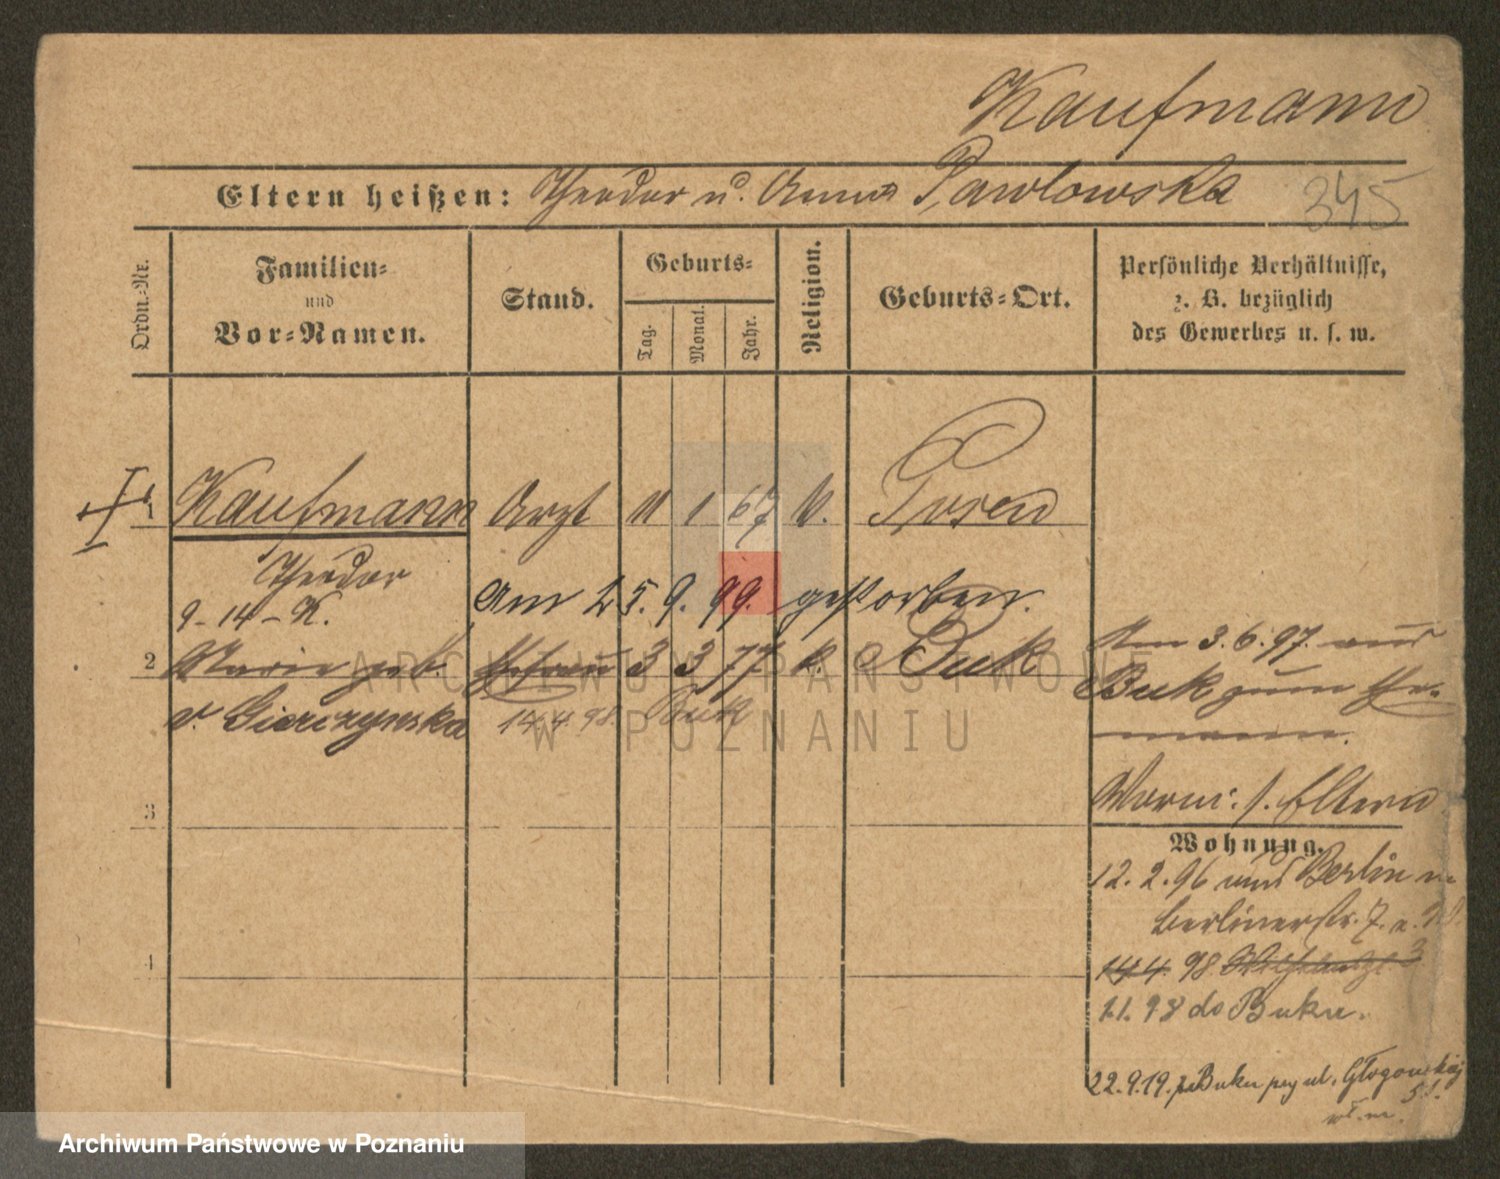 Kaufmann
Eltern heißen: Theodor u. Anna Pawlowska 345
Ordn.-Nr.
Familien- und Vor-Namen.
Stand.
Geburts-
Tag. Monat. Jahr.
Religion.
Geburts-Ort.
Persönliche Verhältnisse,
z. B. bezüglich
des Gewerbes u. s. w.
1 Kaufmann Arzt 11 1 67 k. Posen
Theodor
9-14-K.
Am 25. 9. 99. gestorben.
2 Marie geb. Ehefrau 3 3 77 k. Buk
v. Gierczynska 14.4.98. Buk
Am 3.6.97. aus
Buk zum Ehe-
mann.
3
Eltern
Wohnung.
12. 2. 96 aus Berlin
Berlinerstr. 7.
4
14.4. 98 3
1.1. 98 do Buku.
22.9.19. z Buku przy ul. Głogowskiej
51.
ARCHIWUM PAŃSTWOWE
W POZNANIU
Archiwum Państwowe w Poznaniu